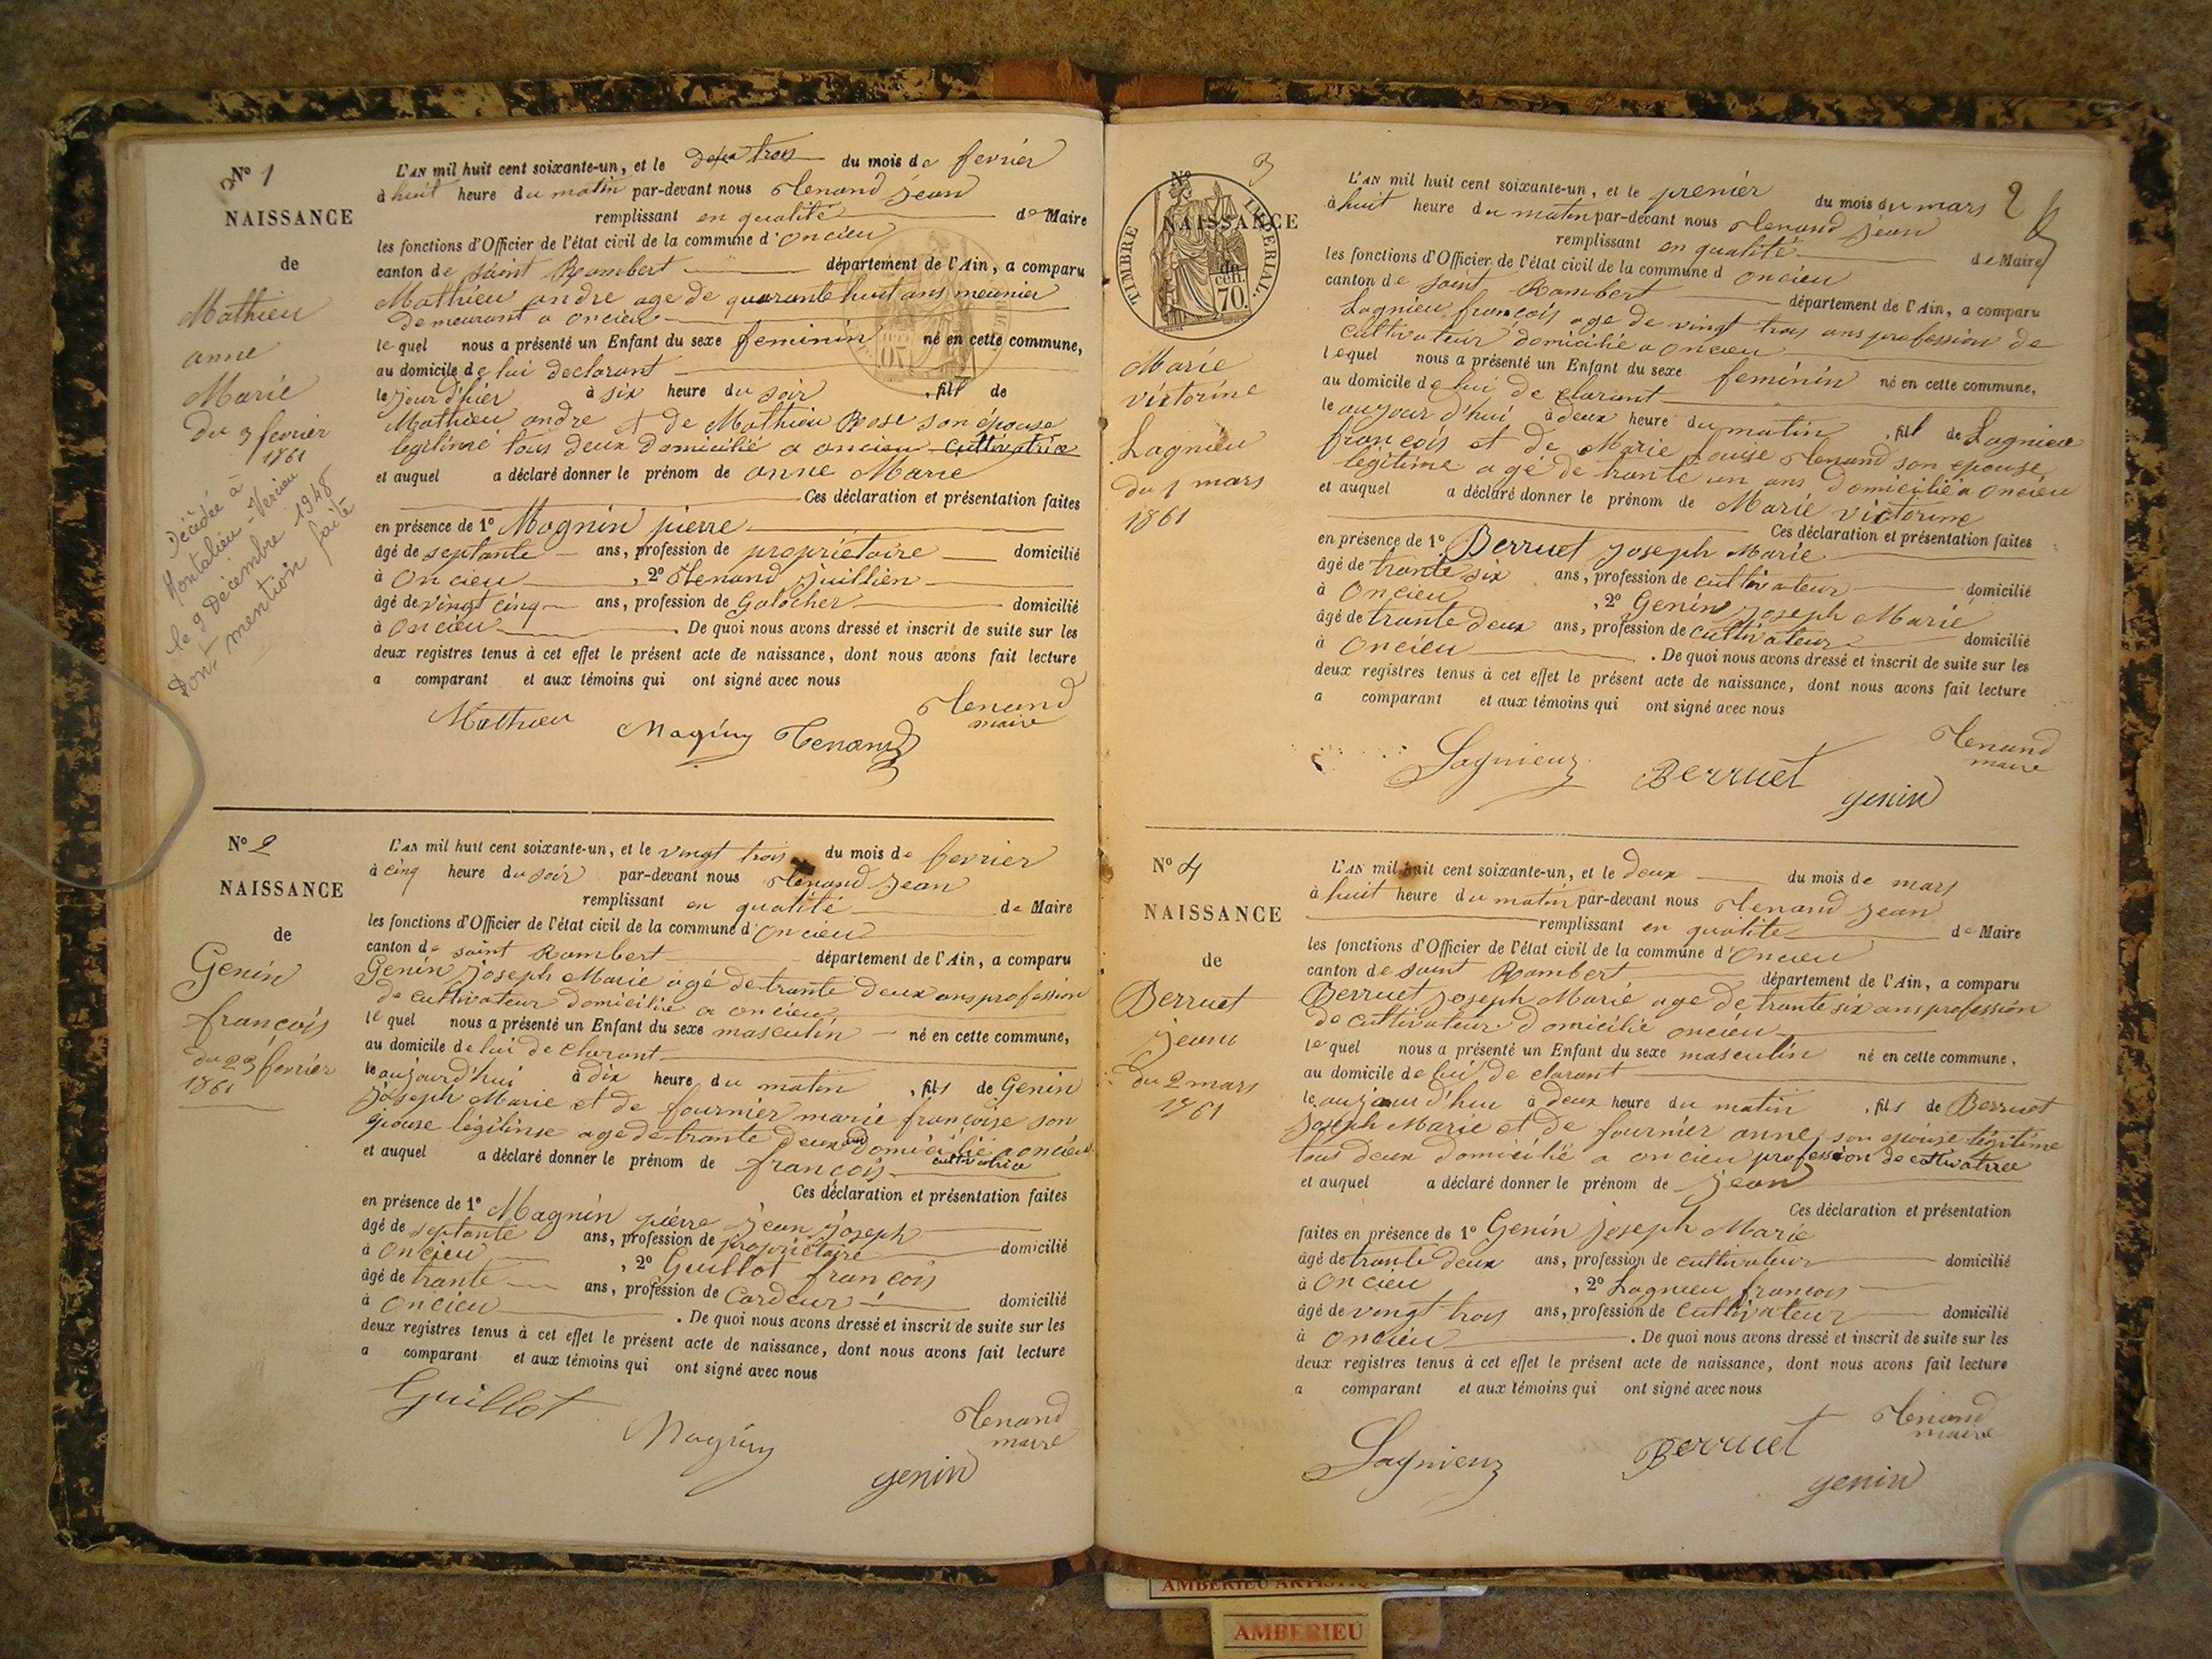 N° 1
NAISSANCE
de
Mathieu
anne
Marie
du 3 fevrier
1861
Décédée à
Montalieu-Vercieu
le 9 Décembre 1948
Dont mention faite
L'AN mil huit cent soixante-un, et le trois du mois de fevrier
à huit heure du matin par-devant nous Tenand jean
remplissant en qualité de Maire
les fonctions d'Officier de l'état civil de la commune d'oncieu
canton de saint Rambert département de l'Ain, a comparu
Mathieu andre age de quarante huit ans meunier
demeurant a oncieu
lequel nous a présenté un Enfant du sexe feminin né en cette commune,
au domicile de lui declarant
le jour d'hier à six heure du soir , fill de
Mathieu andre et de Mathieu Rose son épouse
legitime tous deux domicilié a oncieu cultivatrice
et auquel a déclaré donner le prénom de anne Marie
Ces déclaration et présentation faites
en présence de 1° Magnin pierre
âgé de septante ans, profession de propriétaire domicilié
à oncieu , 2° Tenand juillien
âgé de vingt cinq ans, profession de Galocher domicilié
à oncieu . De quoi nous avons dressé et inscrit de suite sur les
deux registres tenus à cet effet le présent acte de naissance, dont nous avons fait lecture
a comparant et aux témoins qui ont signé avec nous
Mathieu Magnin Tenand Tenand
maire
N° 2
NAISSANCE
de
Genin
françois
du 23 fevrier
1861
L'AN mil huit cent soixante-un, et le vingt trois du mois de fevrier
à cinq heure du soir par-devant nous Tenand jean
remplissant en qualité de Maire
les fonctions d'Officier de l'état civil de la commune d'oncieu
canton de saint Rambert département de l'Ain, a comparu
Genin joseph Marie agé de trante deux ans profession
de cultivateur domicilié a oncieu
lequel nous a présenté un Enfant du sexe masculin né en cette commune,
au domicile de lui declarant
le aujourd'hui à dix heure du matin , fils de Genin
joseph Marie et de fournier marie françoise son
epouse légitime age de trante deux ans domicilié a oncieu
cultivatrice
et auquel a déclaré donner le prénom de françois
Ces déclaration et présentation faites
en présence de 1° Magnin pierre jean joseph
âgé de septante ans, profession de propriétaire domicilié
à oncieu , 2° Guillot françois
âgé de trante ans, profession de Cardeur domicilié
à oncieu . De quoi nous avons dressé et inscrit de suite sur les
deux registres tenus à cet effet le présent acte de naissance, dont nous avons fait lecture
a comparant et aux témoins qui ont signé avec nous
Guillot Magnin Tenand
maire
genin
2
N° 3
NAISSANCE
de
TIMBRE IMPERIAL.
cen.
70.
Marie
victorine
Lagnieu
du 1 mars
1861
L'AN mil huit cent soixante-un, et le premier du mois du mars
à huit heure du matin par-devant nous Tenand jean
remplissant en qualité de Maire
les fonctions d'Officier de l'état civil de la commune d oncieu
canton de saint Rambert département de l'Ain, a comparu
Lagnieu françois age de vingt trois ans profession de
cultivateur domicilié a oncieu
lequel nous a présenté un Enfant du sexe feminin né en cette commune,
au domicile de lui declarant
le aujour d'hui à deux heure du matin , fill de Lagnieu
françois et de Marie Tenand son epouse
légitime agé de trante un ans domicilié a oncieu
et auquel a déclaré donner le prénom de Marie victorine
Ces déclaration et présentation faites
en présence de 1° Berruet joseph Marie
âgé de trante six ans, profession de cultivateur domicilié
à oncieu , 2° Genin joseph Marie
âgé de trante deux ans, profession de cultivateur domicilié
à oncieu . De quoi nous avons dressé et inscrit de suite sur les
deux registres tenus à cet effet le présent acte de naissance, dont nous avons fait lecture
a comparant et aux témoins qui ont signé avec nous
Lagnieu Berruet Tenand
maire
genin
N° 4
NAISSANCE
de
Berruet
jean
du 2 mars
1861
L'AN mil huit cent soixante-un, et le deux du mois de mars
à huit heure du matin par-devant nous Tenand jean
remplissant en qualité de Maire
les fonctions d'Officier de l'état civil de la commune d'oncieu
canton de saint Rambert département de l'Ain, a comparu
Berruet joseph Marie age de trante six ans profession
de cultivateur domicilié oncieu
lequel nous a présenté un Enfant du sexe masculin né en cette commune,
au domicile de lui de clarant
le aujour d'hui à deux heure du matin , fils de Berruet
joseph Marie et de fournier anne son epouse légitime
tous deux domicilié a oncieu profession de cultivatrice
et auquel a déclaré donner le prénom de jean
Ces déclaration et présentation
faites en présence de 1° Genin joseph Marie
âgé de trante deux ans, profession de cultivateur domicilié
à oncieu , 2° Lagnieu françois
âgé de vingt trois ans, profession de cultivateur domicilié
à oncieu . De quoi nous avons dressé et inscrit de suite sur les
deux registres tenus à cet effet le présent acte de naissance, dont nous avons fait lecture
a comparant et aux témoins qui ont signé avec nous
Lagnieu Berruet Tenand
maire
genin
AMBERIEU